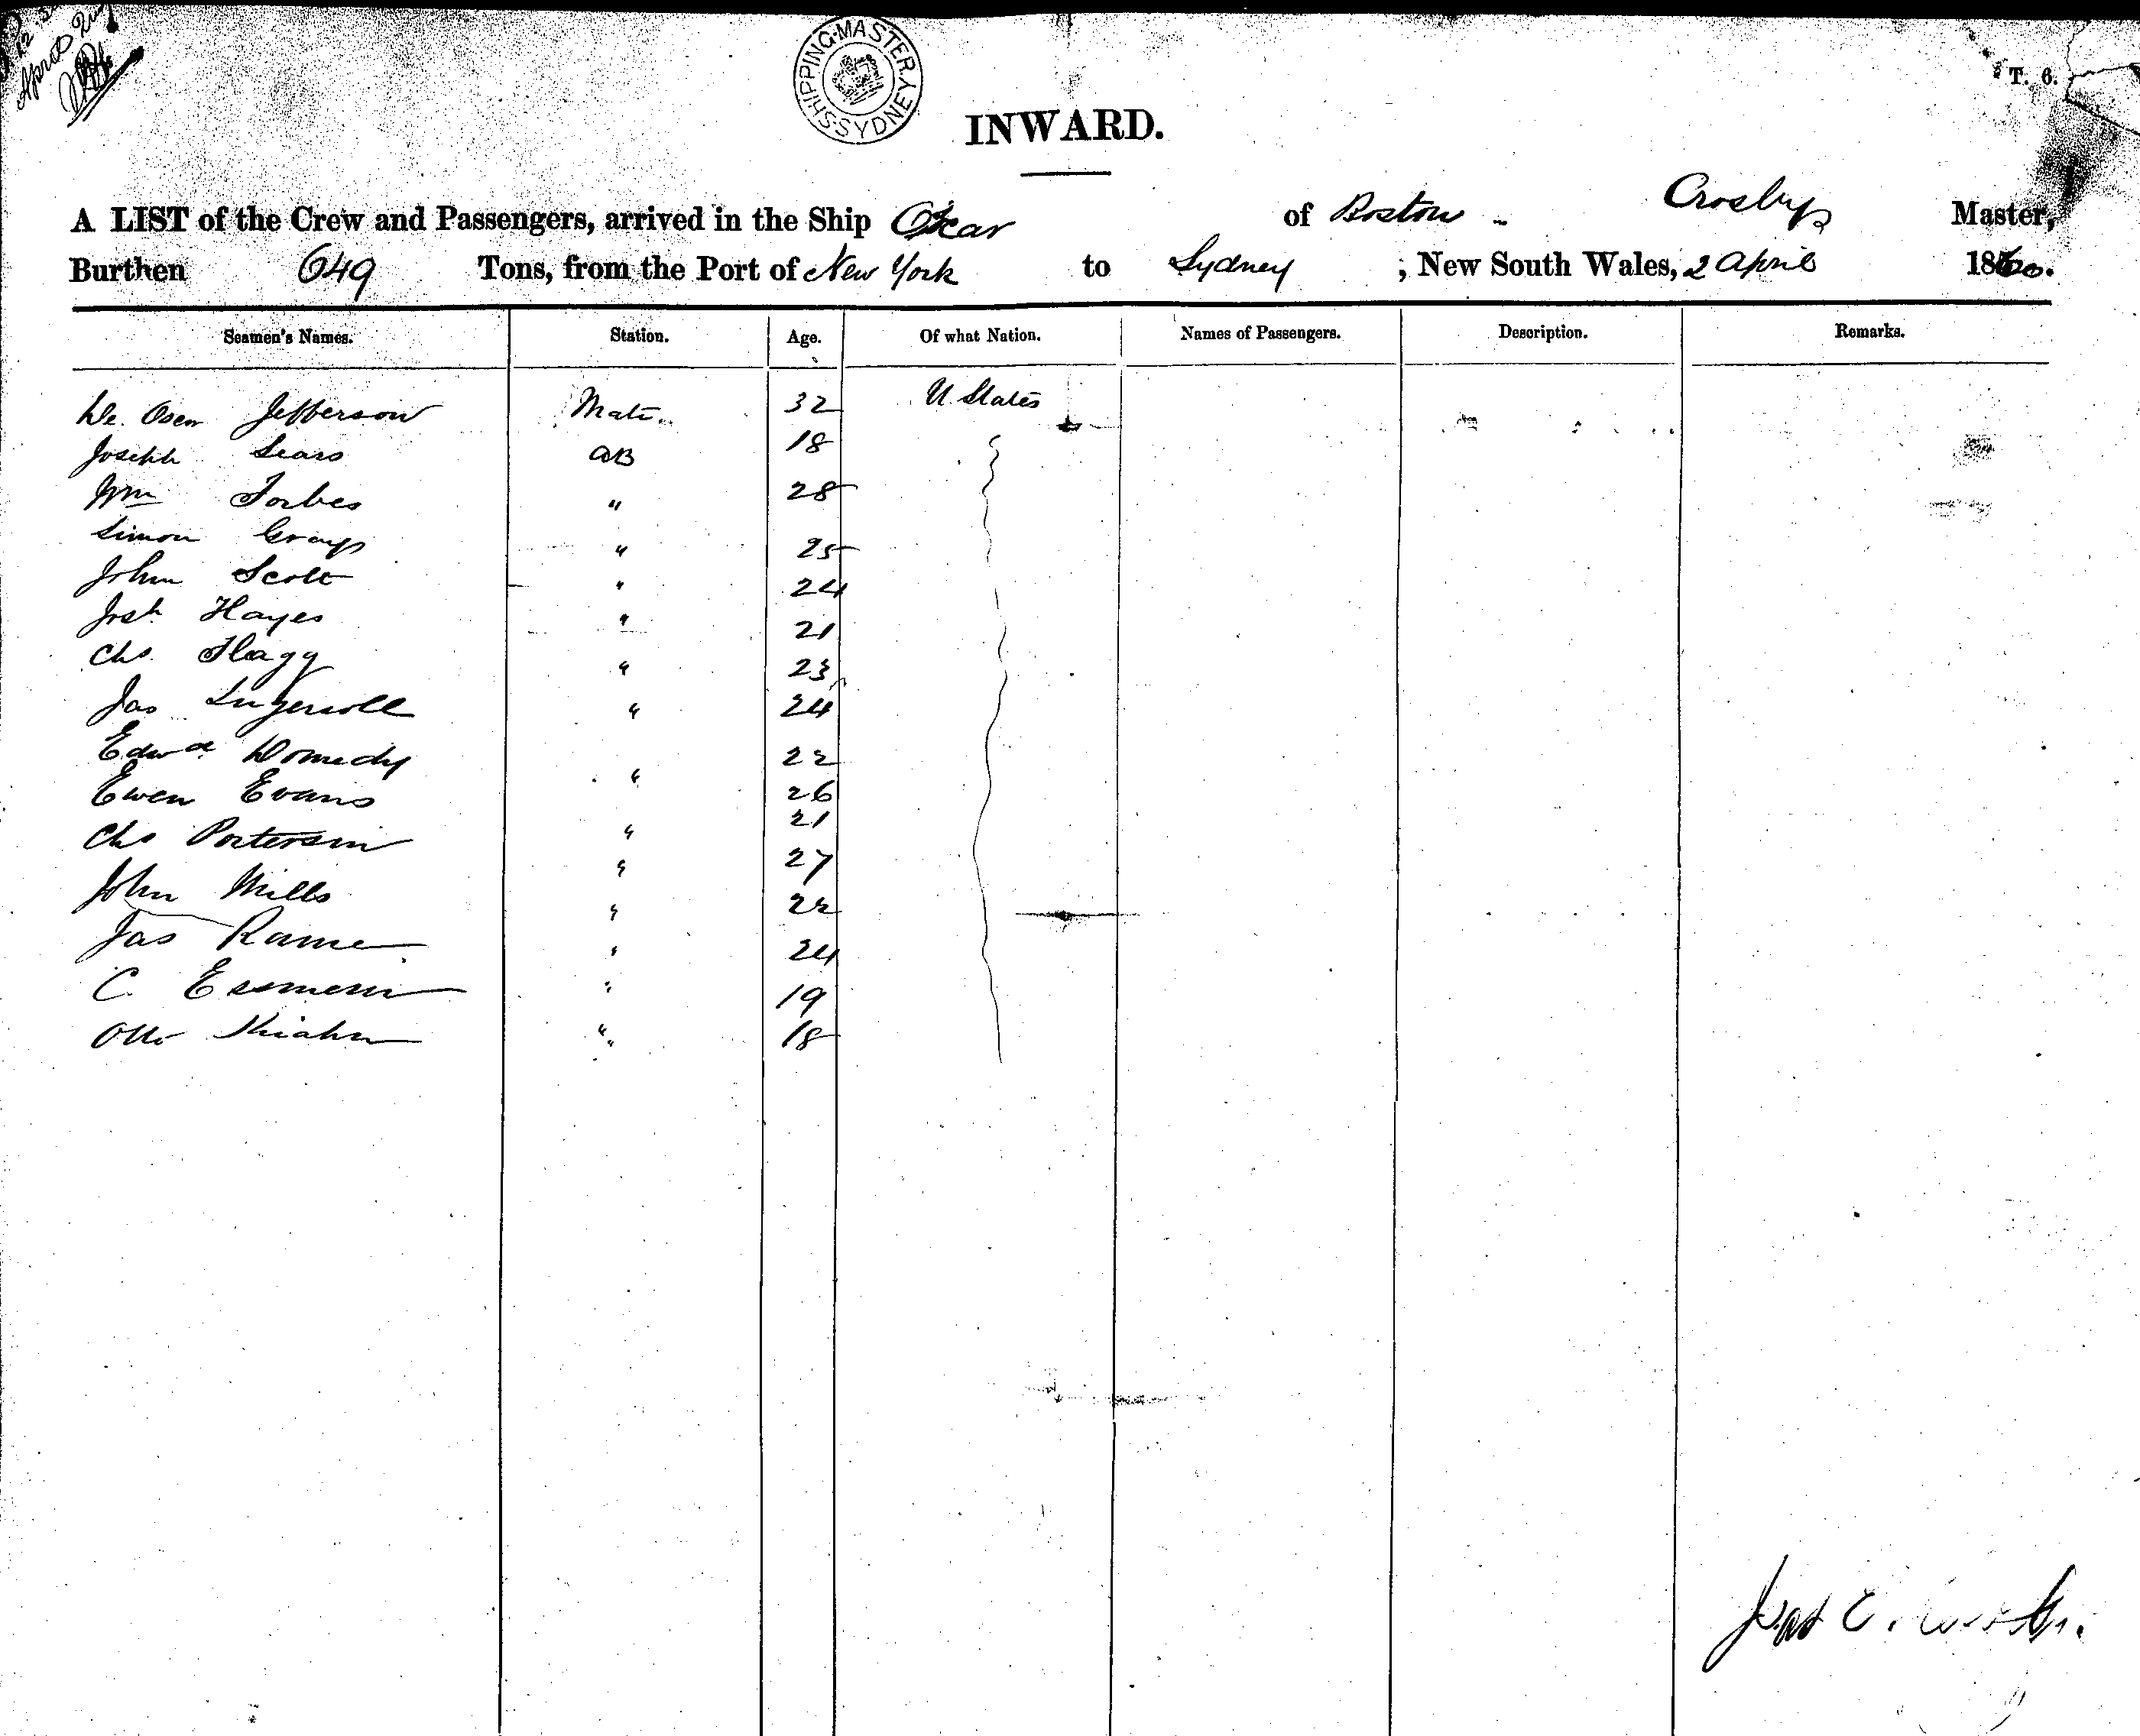 SHIPPING·MASTER·SYDNEY
T. 6.
INWARD.
A LIST of the Crew and Passengers, arrived in the Ship Oscar of Boston - Crosby Master,
Burthen 649 Tons, from the Port of New York to Sydney ; New South Wales, 2 April 1860.
Seamen's Names. Station. Age. Of what Nation. Names of Passengers. Description. Remarks.
Jefferson Mate. 32 U States
Joseph Sears AB 18
Wm Forbes " 28
Simon Gray " 25
John Scott " 24
Josh Hayes " 21
Chs. Flagg " 23
Jas Ingersoll " 24
Edwd. " 22
Ewen Evans 26
Chs " 21
John Mills " 27
Jas " 22
C. " 24
Otto " 19
" 18